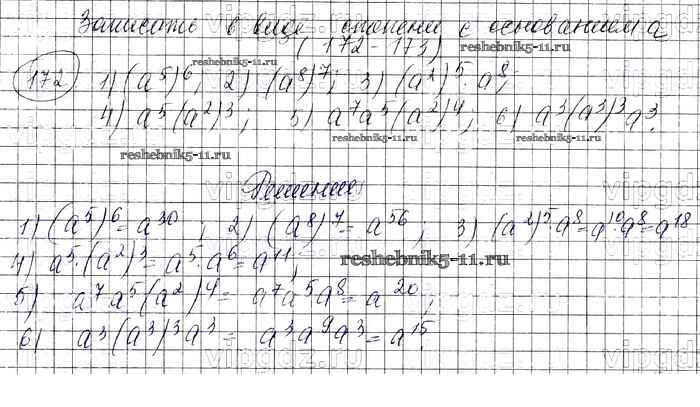 Записать в виде степени с основанием a
(172-173) reshebnik5-11.ru
172 1) (a⁵)⁶; 2) (a⁸)⁷; 3) (a²)⁵·a⁸;
reshebnik5-11.ru
4) a⁵(a²)³; 5) a⁷a⁵(a²)⁴; 6) a³(a³)³a³.
reshebnik5-11.ru reshebnik5-11.ru
reshebnik5-11.ru
Решение
1) (a⁵)⁶=a³⁰; 2) (a⁸)⁷=a⁵⁶; 3) (a²)⁵·a⁸=a¹⁰a⁸=a¹⁸
4) a⁵·(a²)³=a⁵·a⁶=a¹¹; reshebnik5-11.ru
5) a⁷a⁵(a²)⁴= a⁷a⁵a⁸=a²⁰;
6) a³(a³)³a³= a³a⁹a³=a¹⁵.